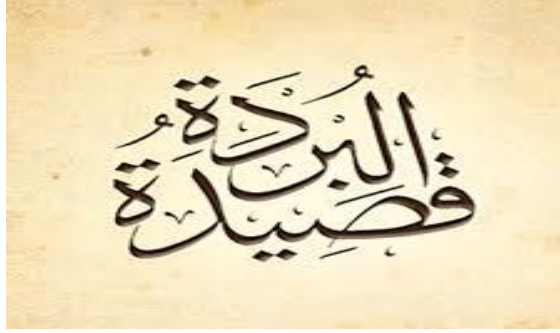 قَصِيدَةُ
البُرْدَة